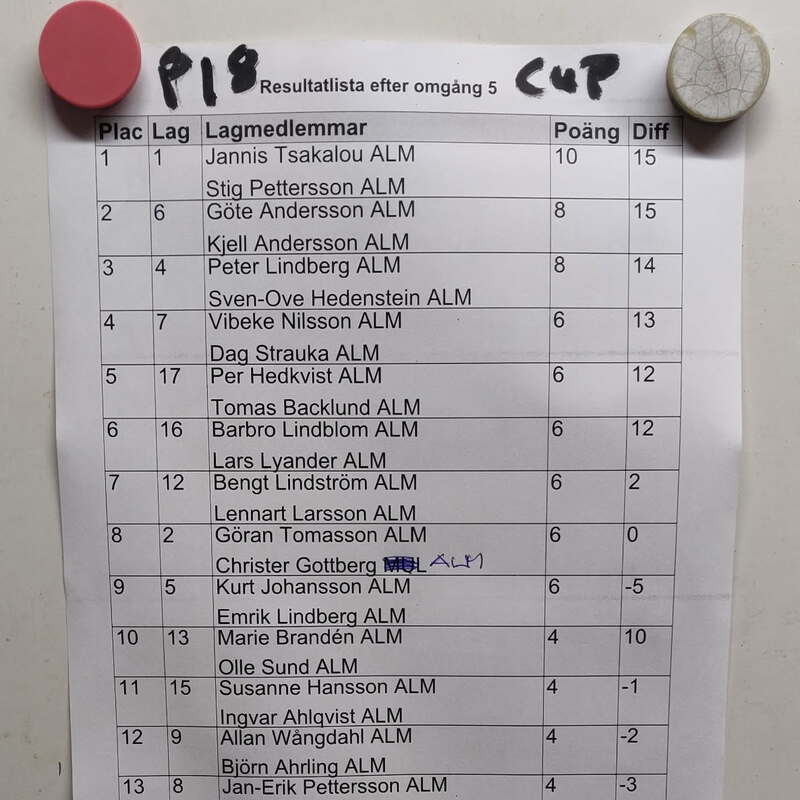 P18 Resultatlista efter omgång 5 CUP
Plac Lag Lagmedlemmar Poäng Diff
1 1 Jannis Tsakalou ALM 10 15
Stig Pettersson ALM
2 6 Göte Andersson ALM 8 15
Kjell Andersson ALM
3 4 Peter Lindberg ALM 8 14
Sven-Ove Hedenstein ALM
4 7 Vibeke Nilsson ALM 6 13
Dag Strauka ALM
5 17 Per Hedkvist ALM 6 12
Tomas Backlund ALM
6 16 Barbro Lindblom ALM 6 12
Lars Lyander ALM
7 12 Bengt Lindström ALM 6 2
Lennart Larsson ALM
8 2 Göran Tomasson ALM 6 0
Christer Gottberg ALM
9 5 Kurt Johansson ALM 6 -5
Emrik Lindberg ALM
10 13 Marie Brandén ALM 4 10
Olle Sund ALM
11 15 Susanne Hansson ALM 4 -1
Ingvar Ahlqvist ALM
12 9 Allan Wångdahl ALM 4 -2
Björn Ahrling ALM
13 8 Jan-Erik Pettersson ALM 4 -3